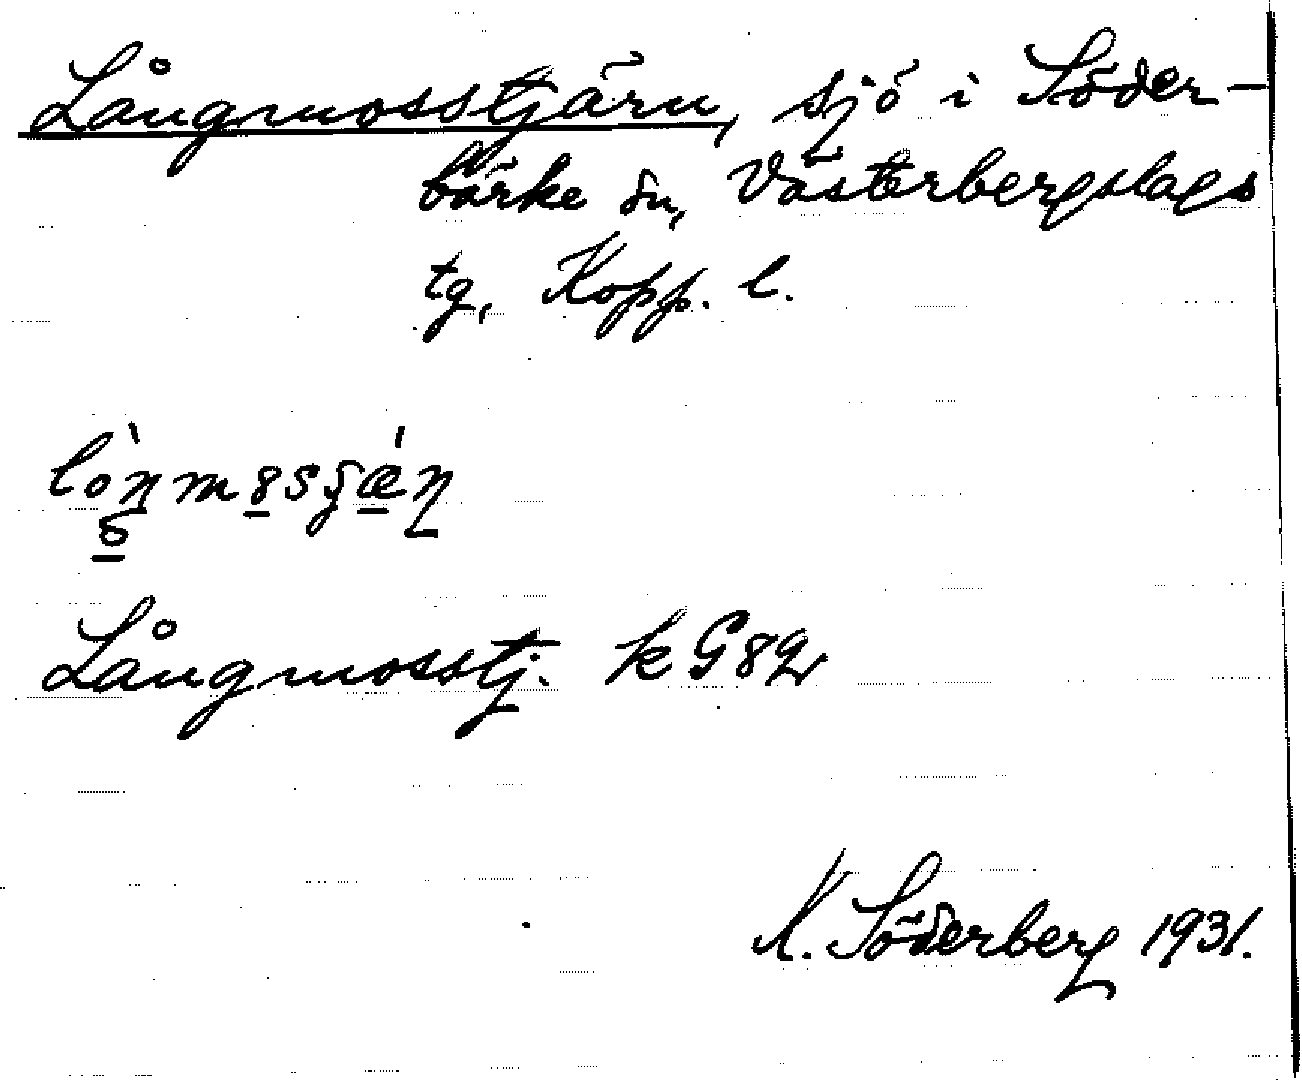 Långmosstjärn, sjö i Söder-
bärke sn, Västerbergslags
tg, Kopp. l.
Långmosstj. kG82
K. Söderberg 1931.